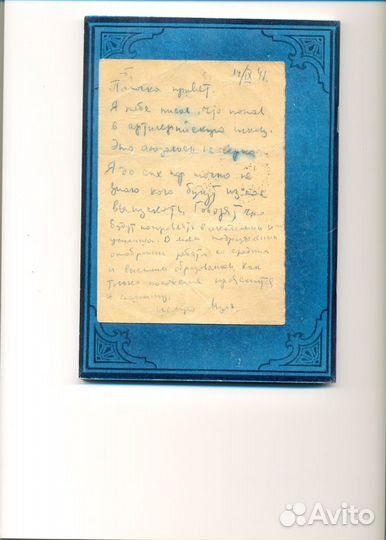 14/IX 41.
Папочка привет.
Я тебе писал, что попал
в артиллерийскую школу.
Это оказалось не верно.
Я до сих пор точно не
знаю кого будут из нас
выпускать. Говорят что
будут направлять в академии и
училища. В моем подразделении
отобраны ребята со средним
и высшим образованием. Как
только положение прояснится
я напишу.
Целую
Avito